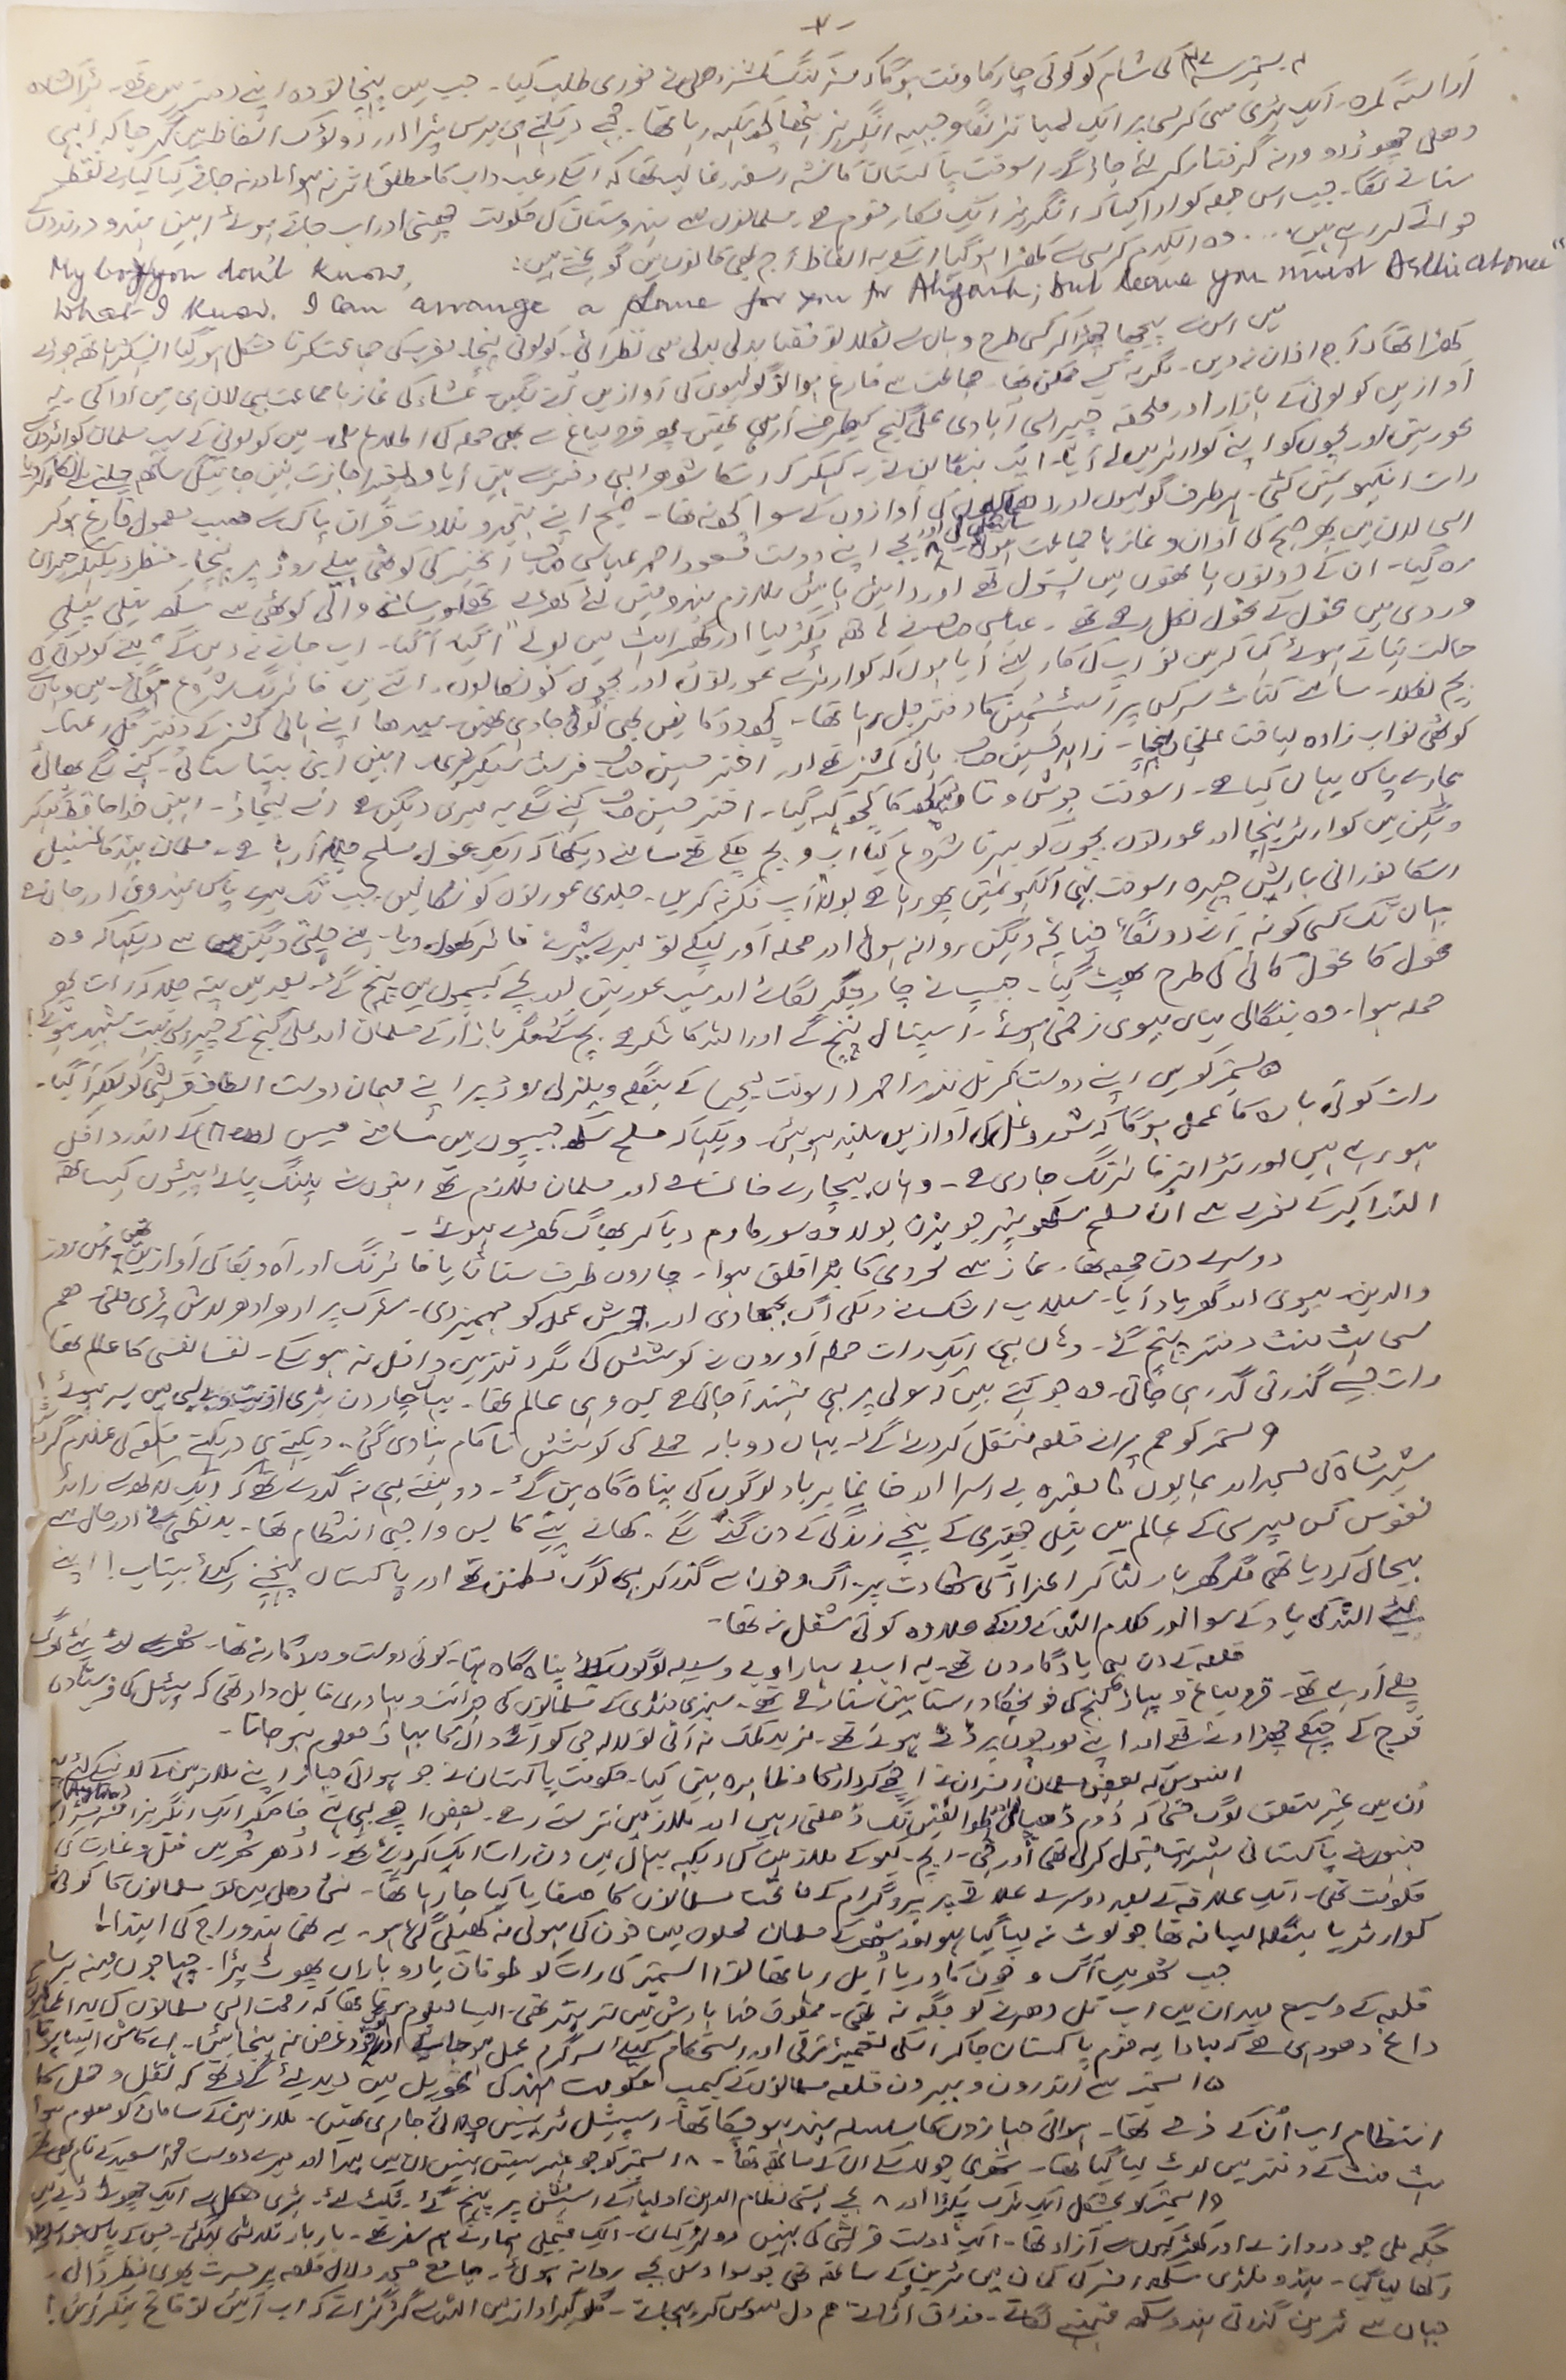 -۲-
۴ ستمبر سنہ ۴۷ کی شام کو کوئی چار کا وقت ہوگا کہ کمشنر دھلی نے فوری طلب کیا۔ جب میں پہنچا تو وہ اپنے دفتر میں تھے۔
آراستہ کمرہ۔ ایک بڑی سی کرسی پر ایک لمبا تڑنگا وجیہہ انگریز بیٹھا کچھ لکھ رہا تھا۔ مجھے دیکھتے ہی برس پڑا اور دو ٹوک الفاظ میں کہہ دیا کہ ابھی
دھلی چھوڑ دو ورنہ گرفتار کر لئے جاؤ گے۔ اسوقت پاکستان کا نشہ اسقدر غالب تھا کہ اسکے رعب داب کا مطلق اثر نہ ہوا اور نہ جانے کیا کیا اسے نقطے
سنانے لگا۔ جب اس جملہ کو ادا کیا کہ انگریز ایک مکار قوم ہے۔ مسلمانوں سے ہندوستان کی حکومت چھینی اور اب جاتے ہوئے انہیں ہندو درندوں کے
حوالے کر رہے ہیں .... وہ ایکدم کرسی سے کھڑا ہو گیا اسکے یہ الفاظ آج بھی کانوں میں گونجتے ہیں:
"My boy you don't know,
What I know. I can arrange a plane for you for Aligarh; but leave you must Delhi at once"
میں اس سے پیچھا چھڑا کر کسی طرح وہاں سے نکلا تو فضا بدلی بدلی سی نظر آئی۔ کولونی پہنچا۔ مغرب کی جماعت ہاتھ جوڑے
کھڑا تھا کہ آج اذان نہ دیں۔ مگر یہ کیسے ممکن تھا۔ جماعت سے فارغ ہوا تو گولیوں کی آوازیں آنے لگیں۔ عشاء کی نماز با جماعت بھی لان ہی میں ادا کی۔ یہ
آوازیں کولونی کے بازار اور ملحقہ چپراسی آبادی علی گنج کیطرف سے آ رہی تھیں۔ قرولباغ سے بھی حملہ کی اطلاع ملی۔ میں کولونی کے سب مسلمان کوارٹروں سے
عورتوں اور بچوں کو اپنے کوارٹر میں لے آیا۔ ایک بنگالن نے یہ کہکر کہ اسکا شوہر ابھی دفتر سے نہیں آیا وہ بغیر اجازت نہیں جائیگی ساتھ چلنے سے انکار کر دیا۔
رات آنکھوں میں کٹی۔ ہر طرف گولیوں اور دھماکوں کی آوازوں کے سوا کچھ نہ تھا۔ صبح اپنے تہجد و تلاوت قرآن پاک سے حسب معمول فارغ ہو کر
اسی لان میں پھر صبح کی اذان و نماز با جماعت ہوئی۔ ۸ بجے اپنے دوست مسعود احمد عباسی صاحب انجنیئر کی کوٹھی بیلے روڈ پر پہنچا۔ منظر دیکھکر حیران
رہ گیا۔ ان کے دونوں ہاتھوں میں پستول تھے اور دائیں بائیں ملازم بندوقیں لئے کھڑے تھے اور سامنے والی کوٹھی سے سکھ پیلی پیلی
وردی میں غول کے غول نکل رہے تھے۔ عباسی صاحب نے ہاتھ پکڑ لیا اور گھبراہٹ میں بولے "آ گیا۔ آ گیا۔ اب جانے نہ دیں گے"
حالت بتاتے ہوئے کہا کہ میں تو آپ کی کار لینے آیا ہوں کہ کوارٹر سے عورتوں اور بچوں کو نکالوں۔ اتنے میں فائرنگ شروع ہو گئی۔ میں وہاں سے
بچ نکلا۔ سامنے کناٹ سرکس پر دفتر جل رہا تھا۔ سیدھا اپنے ہائی کمشنر کے دفتر گل رعنا۔
کوٹھی نواب زادہ لیاقت علی پہنچا۔ زاہد حسین صاحب ہائی کمشنر تھے اور اختر حسین صاحب فرسٹ سیکریٹری۔ انہیں اپنی بپتا سنائی۔ کہنے لگے بھائی
ہمارے پاس یہاں کیا ہے۔ اسوقت جوش و تاؤ میں کچھ کا کچھ کہہ گیا۔ اختر حسین صاحب کہنے لگے یہ میری ویگن ہے اسے لیجاؤ۔ انہیں خدا حافظ کہکر
ویگن میں کوارٹر پہنچا اور عورتوں بچوں کو بھرنا شروع کیا سامنے دیکھا کہ ایک غول مسلح چلا آ رہا ہے۔ مسلمان ہیڈ کانسٹیبل
اسکا نورانی باریش چہرہ اسوقت بھی آنکھوں میں پھر رہا ہے بولا آپ فکر نہ کریں۔ جلدی عورتوں کو نکالیں۔ جب تک میرے پاس بندوق اور جان ہے
یہاں تک کسی کو نہ آنے دونگا۔ چنانچہ ویگن روانہ ہوئی اور حملہ آور لپکے تو میرے شیر نے فائر کھول دیا۔ میں نے چلتی ویگن میں سے دیکھا کہ وہ
غول کا غول کائی کی طرح پھٹ گیا۔ جیپ نے چار چکر لگائے اور سب عورتیں اور بچے کیمپوں میں پہنچ گئے۔ بعد میں پتہ چلا کہ رات پھر
حملہ ہوا۔ وہ بنگالی میاں بیوی زخمی ہوئے۔ اسپتال پہنچ گئے اور اللہ کا شکر ہے بچ گئے مگر بازار کے مسلمان اور علی گنج کے چپراسی شہید ہوئے!
۵ ستمبر کو میں اپنے دوست کرنل نذیر احمر (اسوقت لیجر) کے بنگلے ویلزلی روڈ پر اپنے مہمان دوست الطاف قریشی کو لیکر آ گیا۔
رات کوئی بارہ کا عمل ہوگا کہ شور و غل کی آوازیں بلند ہوئیں۔ دیکھا کہ مسلح سکھ جیپوں میں سامنے میس (mess) کے اندر داخل
ہو رہے ہیں اور تڑا تڑ فائرنگ جاری ہے۔ وہاں بیچارے خانساماں اور مسلمان ملازم تھے انہوں نے پلنگ
اللہ اکبر کے نعرے سے ان مسلح سکھوں پر جو ہلہ بولا وہ سورما دم دبا کر بھاگ کھڑے ہوئے۔
دوسرے دن جمعہ تھا۔ نماز سے محرومی کا بڑا قلق ہوا۔ چاروں طرف سناٹا یا فائرنگ اور آہ و بکا کی آوازیں تھیں۔ اس روز
والدین۔ بیوی اور گھر یاد آیا۔ سیلاب اشک نے دل کی آگ بجھا دی اور جوش عمل کو مہمیز دی۔ سڑک پر ادھر ادھر لاش پڑی ملتی۔ ہم
دفتر پہنچ گئے۔ وہاں بھی ایک رات حملہ آوروں نے کوشش کی مگر دفتر میں داخل نہ ہو سکے۔ نفسا نفسی کا عالم تھا
رات جیسے گذرتی گذر ہی جاتی۔ وہ جو کہتے ہیں کہ سولی پر بھی نیند آ جاتی ہے بس وہی عالم تھا۔ یہاں چار دن بڑی اذیت و بے بسی میں بسر ہوئے!
۹ ستمبر کو ہم پرانے قلعہ منتقل کر دئے گئے۔ یہاں دوبارہ حملے کی کوشش ناکام بنا دی گئی۔ دیکھتے ہی دیکھتے قلعہ کی
شیر شاہ کی مسجد اور ہمایوں کا مقبرہ بے آسرا اور خانماں برباد لوگوں کی پناہ گاہ بن گئے۔ دو ہفتے بھی نہ گذرے تھے کہ ایک لاکھ سے زائد
نفوس کس مپرسی کے عالم میں نیلی چھتری کے نیچے زندگی کے دن گننے لگے۔ کھانے پینے کا بس واجبی انتظام تھا۔ بد نظمی نے اور حال سے
بیحال کر دیا تھا مگر گھر بار لٹا کر اعزاء کی شہادت پر۔ آگ و خون سے گذر کر بھی لوگ مطمئن تھے اور پاکستان پہنچنے کیلئے بیتاب! اپنے
لئے اللہ کی یاد کے سوا اور کلام اللہ کے علاوہ کوئی شغل نہ تھا۔
قلعہ کے دن بھی یادگار دن تھے۔ یہ اب بے سہارا و بے وسیلہ لوگوں کیلئے پناہ گاہ تھا۔ کوئی دوست و مددگار نہ تھا۔ شہر سے لٹے پٹے لوگ
چلے آ رہے تھے۔ قرولباغ و پہاڑ گنج کی خونچکاں داستانیں سنا رہے تھے۔ سبزی منڈی کے مسلمانوں کی جرأت و بہادری قابل داد تھی کہ پٹیل کی فرستادہ
فوج کے چھکے چھڑا دئے تھے اور اپنے مورچوں پر ڈٹے ہوئے تھے۔ مزید کمک نہ آتی تو لالہ جی کو آٹے دال کا بھاؤ معلوم ہو جاتا۔
افسوس کہ بعض مسلمان افسران نے اچھے کردار کا مظاہرہ نہیں کیا۔ حکومت پاکستان نے جو ہوائی جہاز اپنے ملازمین کے لانے کیلئے بھیجے
ان میں غیر متعلق لوگ حتیٰ کہ ڈوم ڈھاڑی اور طوائفیں تک ڈھلتی رہیں اور ملازمین ترستے رہے۔ بعض اچھے بھی تھے خاص کر ایک انگریز افسر
جنہوں نے پاکستانی شہریت قبول کر لی تھی ملازمین کی دیکھ بھال میں دن رات ایک کر دئے تھے۔ ادھر شہر میں قتل و غارت کی
حکومت تھی۔ ایک علاقے کے بعد دوسرے علاقے پر پروگرام کے تحت مسلمانوں کا صفایا کیا جا رہا تھا۔ نئی دھلی میں تو مسلمانوں کا کوئی
کوارٹر یا بنگلہ ایسا نہ تھا جو لوٹ نہ لیا گیا ہو اور شہر کے مسلمان محلوں میں خون کی ہولی نہ کھیلی گئی ہو۔ یہ تھی ہندو راج کی ابتداء!
جب شہر میں آگ و خون کا دریا ابل رہا تھا تو ۱۱ ستمبر کی رات کو طوفان باد و باراں پھوٹ پڑا۔ چھاجوں مینہ برسا
قلعہ کے وسیع میدان میں اب تل دھرنے کو جگہ نہ تھی۔ مخلوق خدا بارش میں تر بتر تھی۔ ایسا معلوم ہوتا تھا کہ رحمت الٰہی مسلمانوں کے
داغ دھو رہی ہے کہ مبادا یہ قوم پاکستان جا کر اسکی تعمیر ترقی اور استحکام کیلئے سرگرم عمل ہو جائے اور خود غرض نہ
۱۵ ستمبر سے اندرون و بیرون قلعہ مسلمانوں کے کیمپ حکومت ہند کی تحویل میں دیدئے گئے تھے کہ نقل و حمل کا
انتظام اب اُن کے ذمے تھا۔ ہوائی جہازوں کا سلسلہ بند ہو چکا تھا۔ اسپیشل ٹرینیں چلائی جا رہی تھیں۔ ملازمین کے سامان کو معلوم ہوا
کے دفتر میں لوٹ لیا گیا تھا۔ ۱۸ ستمبر کو جو میرا اور میرے دوست محمد سعید کے نام بھی تھے
۱۹ ستمبر کو بمشکل ایک ٹرک پکڑا اور ۸ بجے بستی نظام الدین اولیاء کے اسٹیشن پر پہنچ گئے۔ ٹکٹ لئے۔ بڑی مشکل سے ایک چھوٹے ڈبے میں
جگہ ملی جو دروازے اور کھڑکیوں سے آزاد تھا۔ ایک دوست قریشی کی بہنیں دو لڑکیاں۔ ایک فیملی ہمارے ہم سفر تھے۔ بار بار تلاشی لی گئی۔
رکھا لیا گیا۔ ہندو ملٹری سکھ افسر کی کمان میں ٹرین کے ساتھ تھی جو سوا دس بجے روانہ ہوئی۔ جامع مسجد و لال قلعہ پر حسرت بھری نظر ڈالی۔
جہاں سے ٹرین گذرتی ہندو سکھ قہقہے لگاتے۔ مذاق اڑاتے ہم دل مسوس کر رہ جاتے۔ اللہ سے گڑگڑاتے کہ اب آئیں تو فاتح بنکر آئیں!